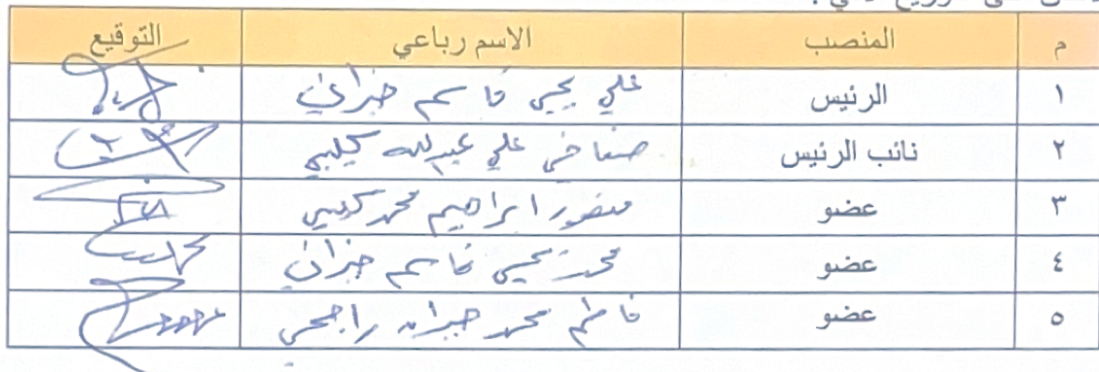 م المنصب الاسم رباعي التوقيع
١ الرئيس علي يحيى قاسم جبران
٢ نائب الرئيس علي عبدلله كليبي
٣ عضو منصور ابراهيم محمد كليبي
٤ عضو محمد يحيى قاسم جبران
٥ عضو محمد جبران راجحي